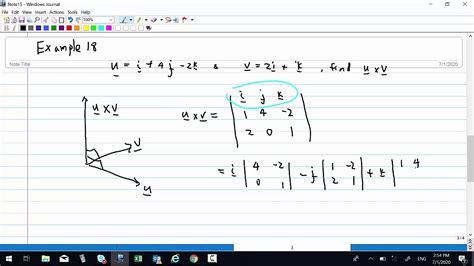 Note15 - Windows Journal
File Edit View Insert Actions Tools Help
Example 18
Note Title
7/1/2020
u = i + 4j - 2k & v = 2i + k , find u x v
u x v
v
u
u x v = | i j k |
| 1 4 -2 |
| 2 0 1 |
= i | 4 -2 | - j | 1 -2 | + k | 1 4
| 0 1 | | 2 1 | |
3 / 4
3
2:54 PM
7/1/2020